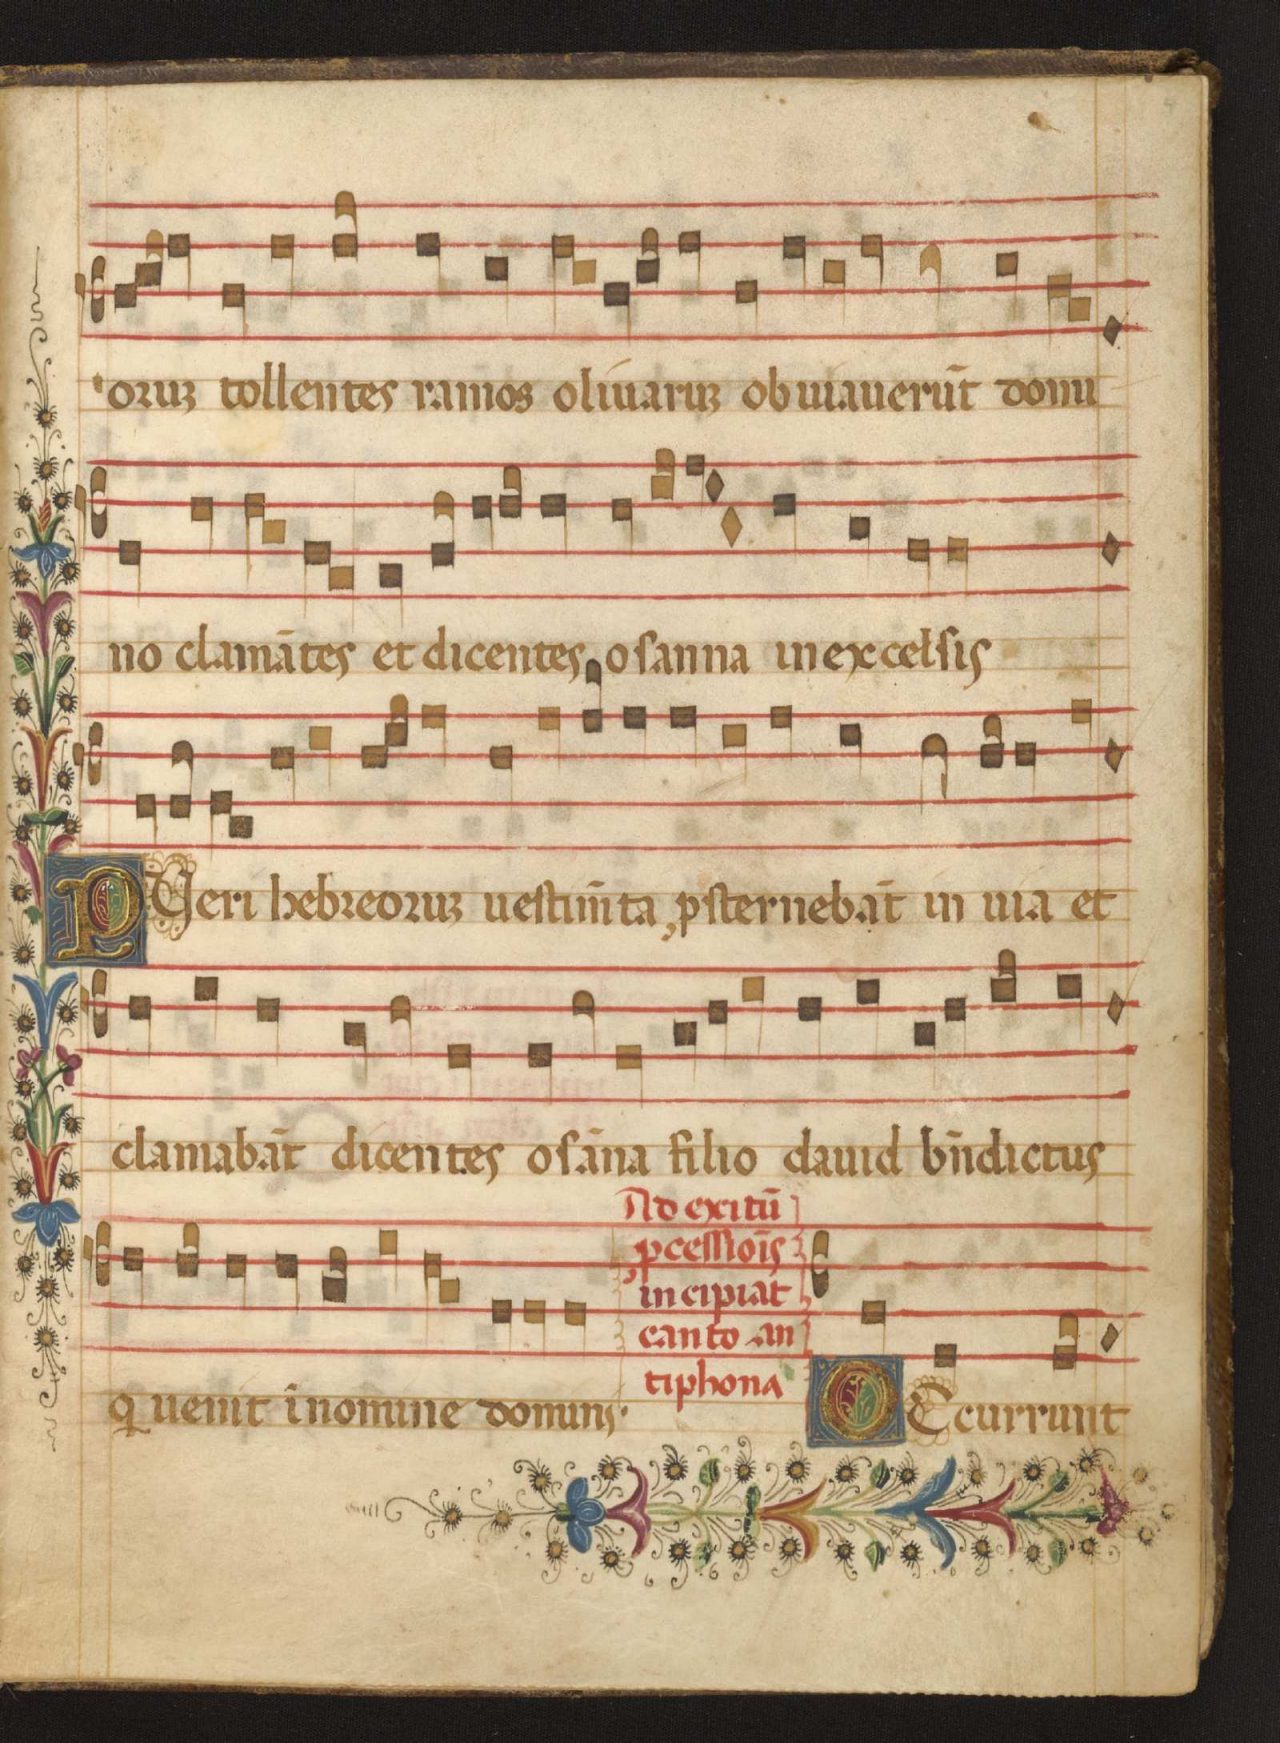 oruꝫ tollentes ramos oliuaruꝫ obuiauerūt domi
no clamātes et dicentes osanna in excelsis
PUeri hebreoruꝫ uestim̄ta ꝓsternebāt in uia et
clamabāt dicentes osāna filio dauid bn̄dictus
q uenit in nomine domini
Ad exitū
ꝓcessiōis
incipiat
cantor an
tiphona
OCcurrunt